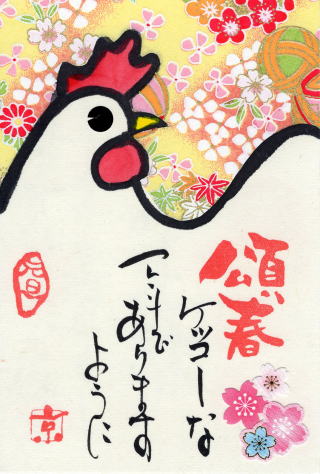 頌春
ケッコーな
一年であります
ように
元旦
京